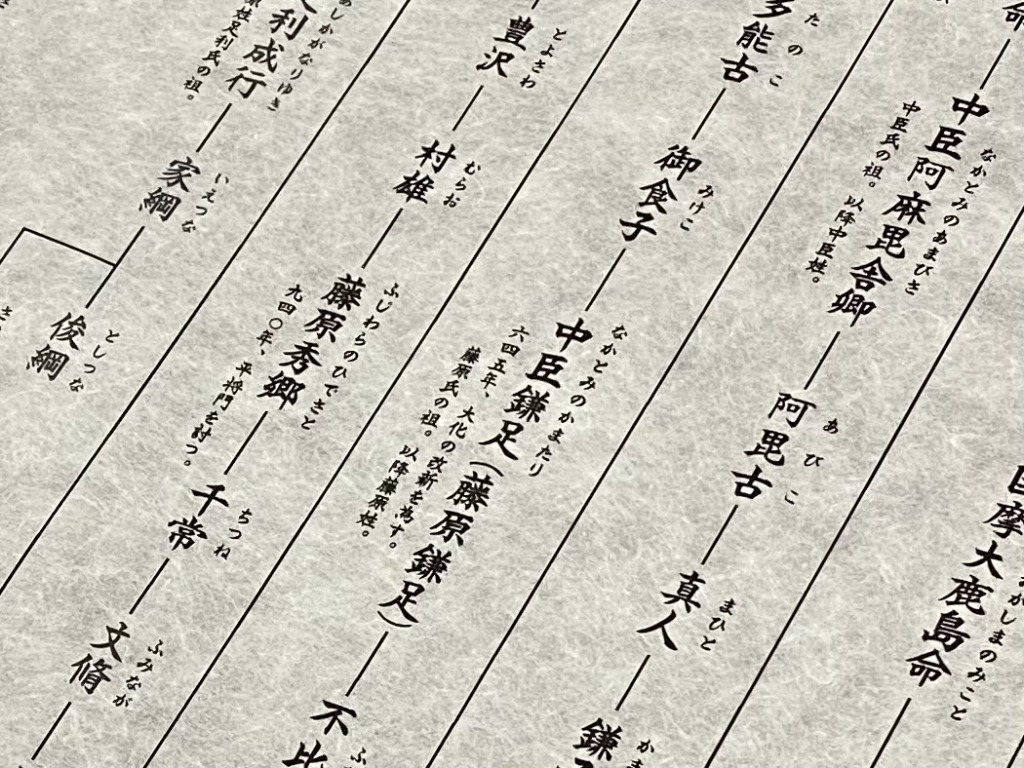 命
摩大鹿島命
かしまのみこと
中臣阿麻毘舎卿
なかとみのあまびさ
中臣氏の祖。以降中臣姓。
阿毘古
あびこ
真人
まひと
鎌
かま
多能古
たのこ
御食子
みけこ
中臣鎌足(藤原鎌足)
なかとみのかまたり
六四五年、大化の改新を為す。
藤原氏の祖。以降藤原姓。
不比
ふ
豊沢
とよさわ
村雄
むらお
藤原秀郷
ふじわらのひでさと
九四〇年、平将門を討つ。
千常
ちつね
文脩
ふみなが
利成行
あしかがなりゆき
姓足利氏の祖。
家綱
いえつな
俊綱
としつな